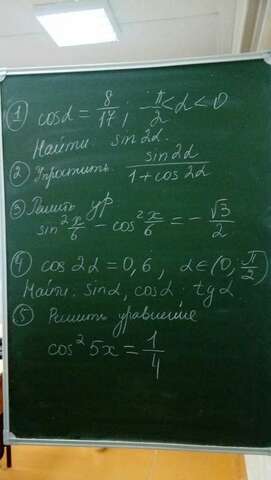 ① cosα = 8/17; -π/2 < α < 0
Найти sin2α.
② Упростить sin2α/(1+cos2α)
③ Решить ур.
sin² x/6 - cos² x/6 = -√3/2
④ cos2α = 0,6, α∈(0; π/2)
Найти: sinα, cosα. tgα
⑤ Решить уравнение
cos² 5x = 1/4